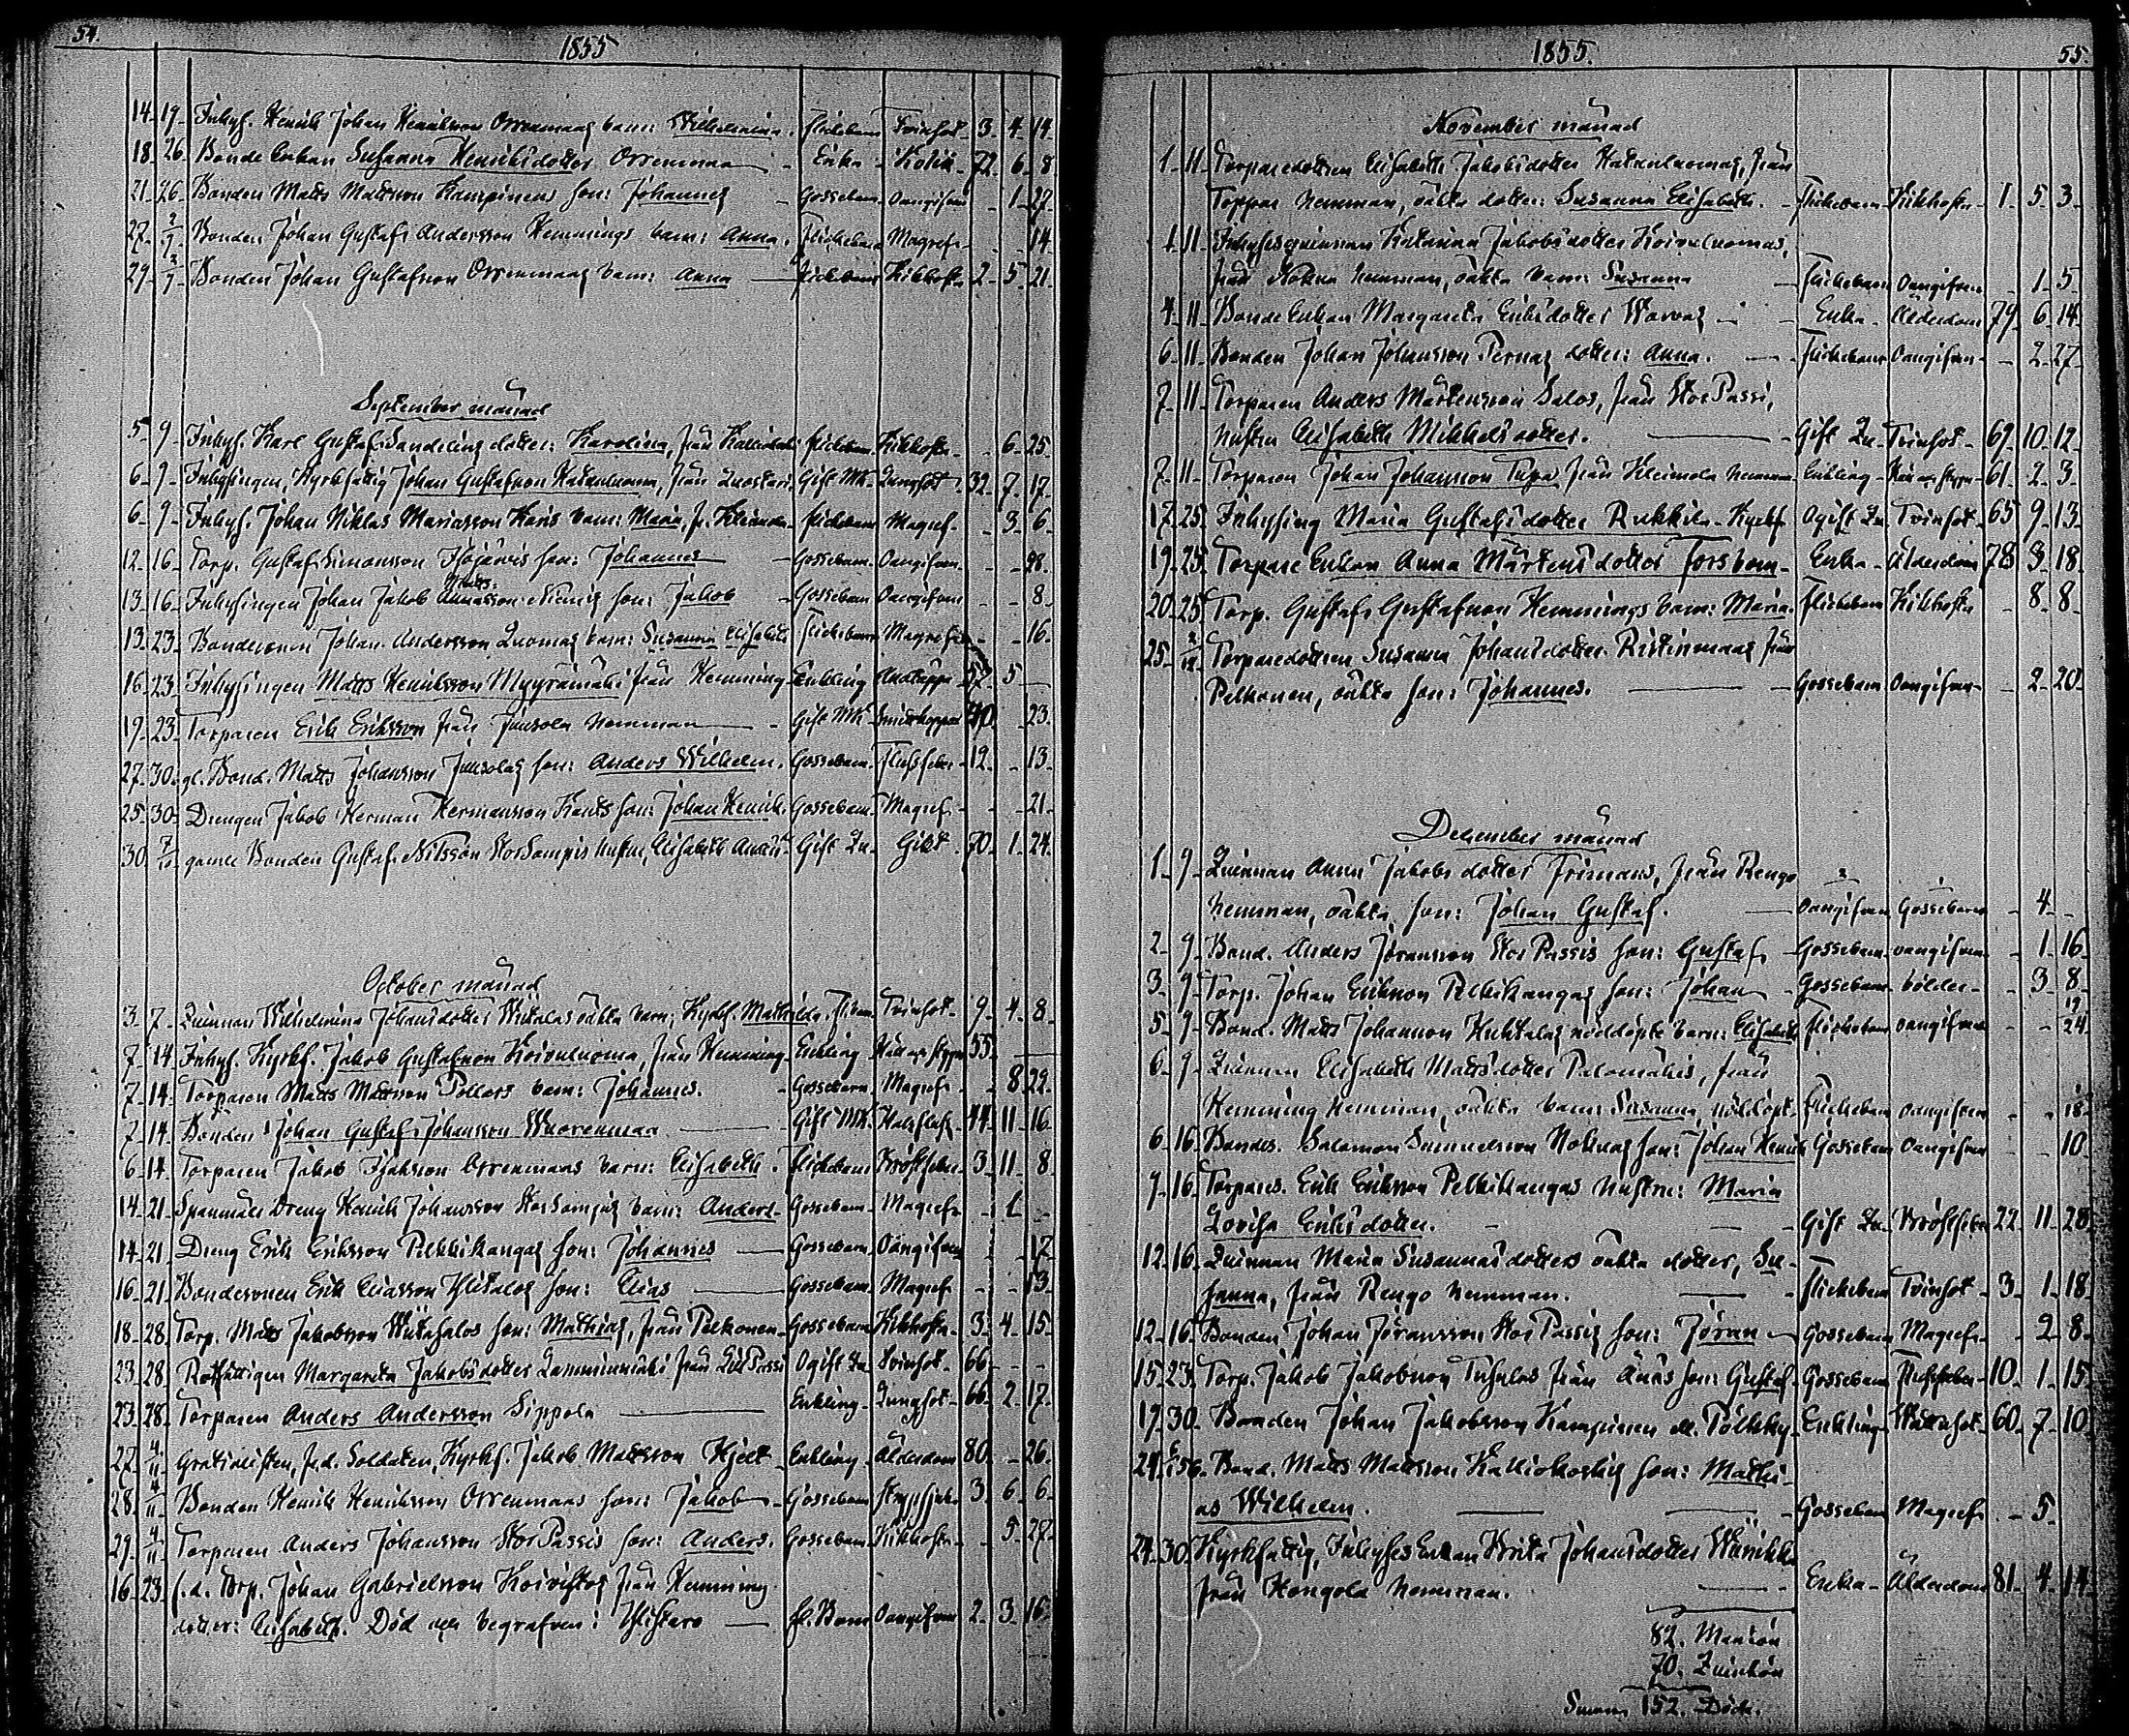 54.
1855
14 19 Inhys. Henrik Johan Henriksson Orrenmaas barn: Wilhelmina. flickebarn Tvinsot 3 4 14
18 26 Bonde Enkan Susanna Henriksdotter Orrenmaa Enka Kolik 72 6 8
21 26 Bonden Matts Mattsson Kampinens son: Johannes Gossebarn Oangifven 1 27
27 2/9 Bonden Johan Gustaf Andersson Hemmings barn: Anna. flickebarn Magref. 14
29 2/9 Bonden Johan Gustafsson Orrenmaas barn: Anna flickebarn Kikhosta 2 5 21
September månad
5 9 Inhys. Karl Gustaf Sandelins dotter: Karolina, från flickebarn Kikhosta 6 25
6 9 Inhysingen, Kyrkfattig Johan Gustafsson från Gift MK. Lungsot 32 7 17
6 9 Inhys. Johan Niklas Mariasson barn: Maria, fr. flickebarn Magref. 3 6
12 16 Torp. Gustaf Simonsson Isojärvis son: Johannes Gossebarn Oangifven 28
13 16 Inhysingen Johan Jakob Niemis son: Jakob Gossebarn Oangifven 8
13 23 Bondesonen Johan Andersson Luomas barn: Susanna Elisabeth flickebarn Magref 16
16 23 Inhysingen Matts Henriksson Myyrämäki från Hemming Enkling Andtäppa 57 5
19 23 Torparen Erik Eriksson från Jussola hemman Gift MK Smittkoppor 40 23
27 30 gl. Bond. Matts Johansson Jussolas son: Anders Wilhelm. Gossebarn Flussfeber 12 13
25 30 Drengen Jakob Herman Hermansson son: Johan Henrik. Gossebarn Magref. 21
30 7/10 gamle Bonden Gustaf Nilsson Storsompis hustru, Elisabeth Gift Qu. Gikt 70 1 24
October månad
3 7 Quinnan Wilhelmina Johansdotter oäkta barn, Kyrkf. Mathilda Tvinsot 9 4 8
7 14 Inhys. Kyrkf. Jakob Gustafsson Koivuluoma, från Hemming Enkling 55
7 14 Torparen Matts Mattsson Pollars barn: Johannes. Gossebarn Magref. 8 22
7 14 Bonden Johan Gustaf Johansson Wuorenmaa Gift MK. Halsfluss 44 11 16
6 14 Torparen Jakob Isaksson Orrenmaas barn: Elisabeth. flickebarn Bröstfeber 3 11 8
14 21 Spannmåls Dreng Henrik Johansson Storsompis barn: Anders Gossebarn Magref. 1
14 21 Dreng Erik Eriksson Pelkkikangas son: Johannes Gossebarn Oangifven 17
16 21 Bondesonen Erik Eliasson Ylitalos son: Elias Gossebarn Magref. 13
18 28 Torp. Matts Jakobsson Wiitasalos son: Mathias, från Pelkonen Gossebarn Kikhosta 3 4 15
23 28 Rotfattigen Margareta Jakobsdotter Lamminmäki från LillPassi Ogift Qu. Tvinsot 66
23 28 Torparen Anders Andersson Sippola Enkling Lungsot 66 2 17
27 4/11 Gratialisten, f.d. Soldaten, Kyrkf. Jakob Mattsson Hjelt Enkling Ålderdom 80 26
28 4/11 Bonden Henrik Henriksson Orrenmaas son: Jakob Gossebarn 3 6 6
29 4/11 Torparen Anders Johansson StorPassis son: Anders. Gossebarn Kikhosta 5 27
16 23 f.d. Torp. Johan Gabrielsson Koivistos från Hemming
dotter: Elisabeth. Död och begrafven i Ylistaro fl. Barn Oangifven 2 3 16
1855.
55.
November månad
1 11 Torparedottern Elisabeth Jakobsdotter från
Toppar hemman, oäkta dotter: Susanna Elisabeth. Flickebarn Kikhosta 1 5 3
1 11 Inhysesquinnan Katarina Jakobsdotter Koivuluomas,
från Kokko hemman, oäkta barn: Susanna Flickebarn Oangifven 1 5
4 11 Bonde Enkan Margareta Eriksdotter Enka Ålderdom 79 6 14
6 11 Bonden Johan Johansson Pernas dotter: Anna. Flickebarn Oangifven 2 27
7 11 Torparen Anders Mårtensson Salos, från StorPassi,
hustru Elisabeth Mikkelsdotter. Gift Qu. Tvinsot 69 10 12
7 11 Torparen Johan Johansson Tupa från Heimola hemman Enkling 61 2 3
17 25 Inhysing Maria Gustafsdotter Rukkila Kyrkf. Ogift Qu Tvinsot 65 9 13
19 25 Torpare Enkan Anna Mårtensdotter Forsbom Enka Ålderdom 78 3 18
20 25 Torp. Gustaf Gustafsson Hemmings barn: Maria. Flickebarn Kikhosta 8 8
25 2/12 Torparedottern Susanna Johansdotter Ristinmaas från
Pelkonen, oäkta son: Johannes. Gossebarn Oangifven 2 20
December månad
1 9 Quinnan Anna Jakobsdotter Frimans, från Rengo
hemman, oäkta son: Johan Gustaf. Oangifven Gossebarn 4
2 9 Bond. Anders Jöransson StorPassis son: Gustaf Gossebarn oangifven 1 16
3 9 Torp. Johan Eriksson Pelkkikangas son: Johan Gossebarn bölder 3 8
5 9 Bond. Matts Johansson Huhtalas nöddöpte barn: Elisabeth flickebarn oangifven 24
6 9 Quinnan Elisabeth Mattsdotter Palomäkis, från
Hemming hemman, oäkta barn: Susanna, nöddöpt. Flickebarn oangifven 18
6 16 Bondes. Salomon Samuelsson son: Johan Henrik Gossebarn Oangifven 10
7 16 Torpares. Erik Eriksson Pelkkikangas hustru: Maria
Lovisa Eriksdotter. Gift Qu. Bröstfeber 22 11 28
12 16 Quinnan Maria Susannasdotters oäkta dotter, Su-
sanna, från Rengo hemman. flickebarn Tvinsot 3 1 18
12 16 Bonden Johan Jöransson StorPassis son: Jöran Gossebarn Magref. 2 8
15 23 Torp. Jakob Jakobsson från son: Gustaf Gossebarn Flussfeber 10 1 15
19 30 Bonden Johan Jakobsson Kampinen el. Pölkky Enkling Wattusot 60 7 10
24 Bond. Matts Mattsson Kalliokoskis son: Mathi-
as Wilhelm. Gossebarn Magref. 5
24 30 Kyrkfattig, Inhyses Enkan Brita Johansdotter
från Hongola hemman. Enka Ålderdom 81 4 14
82. Mankön
70. Quinkön
Summa 152. Döde.